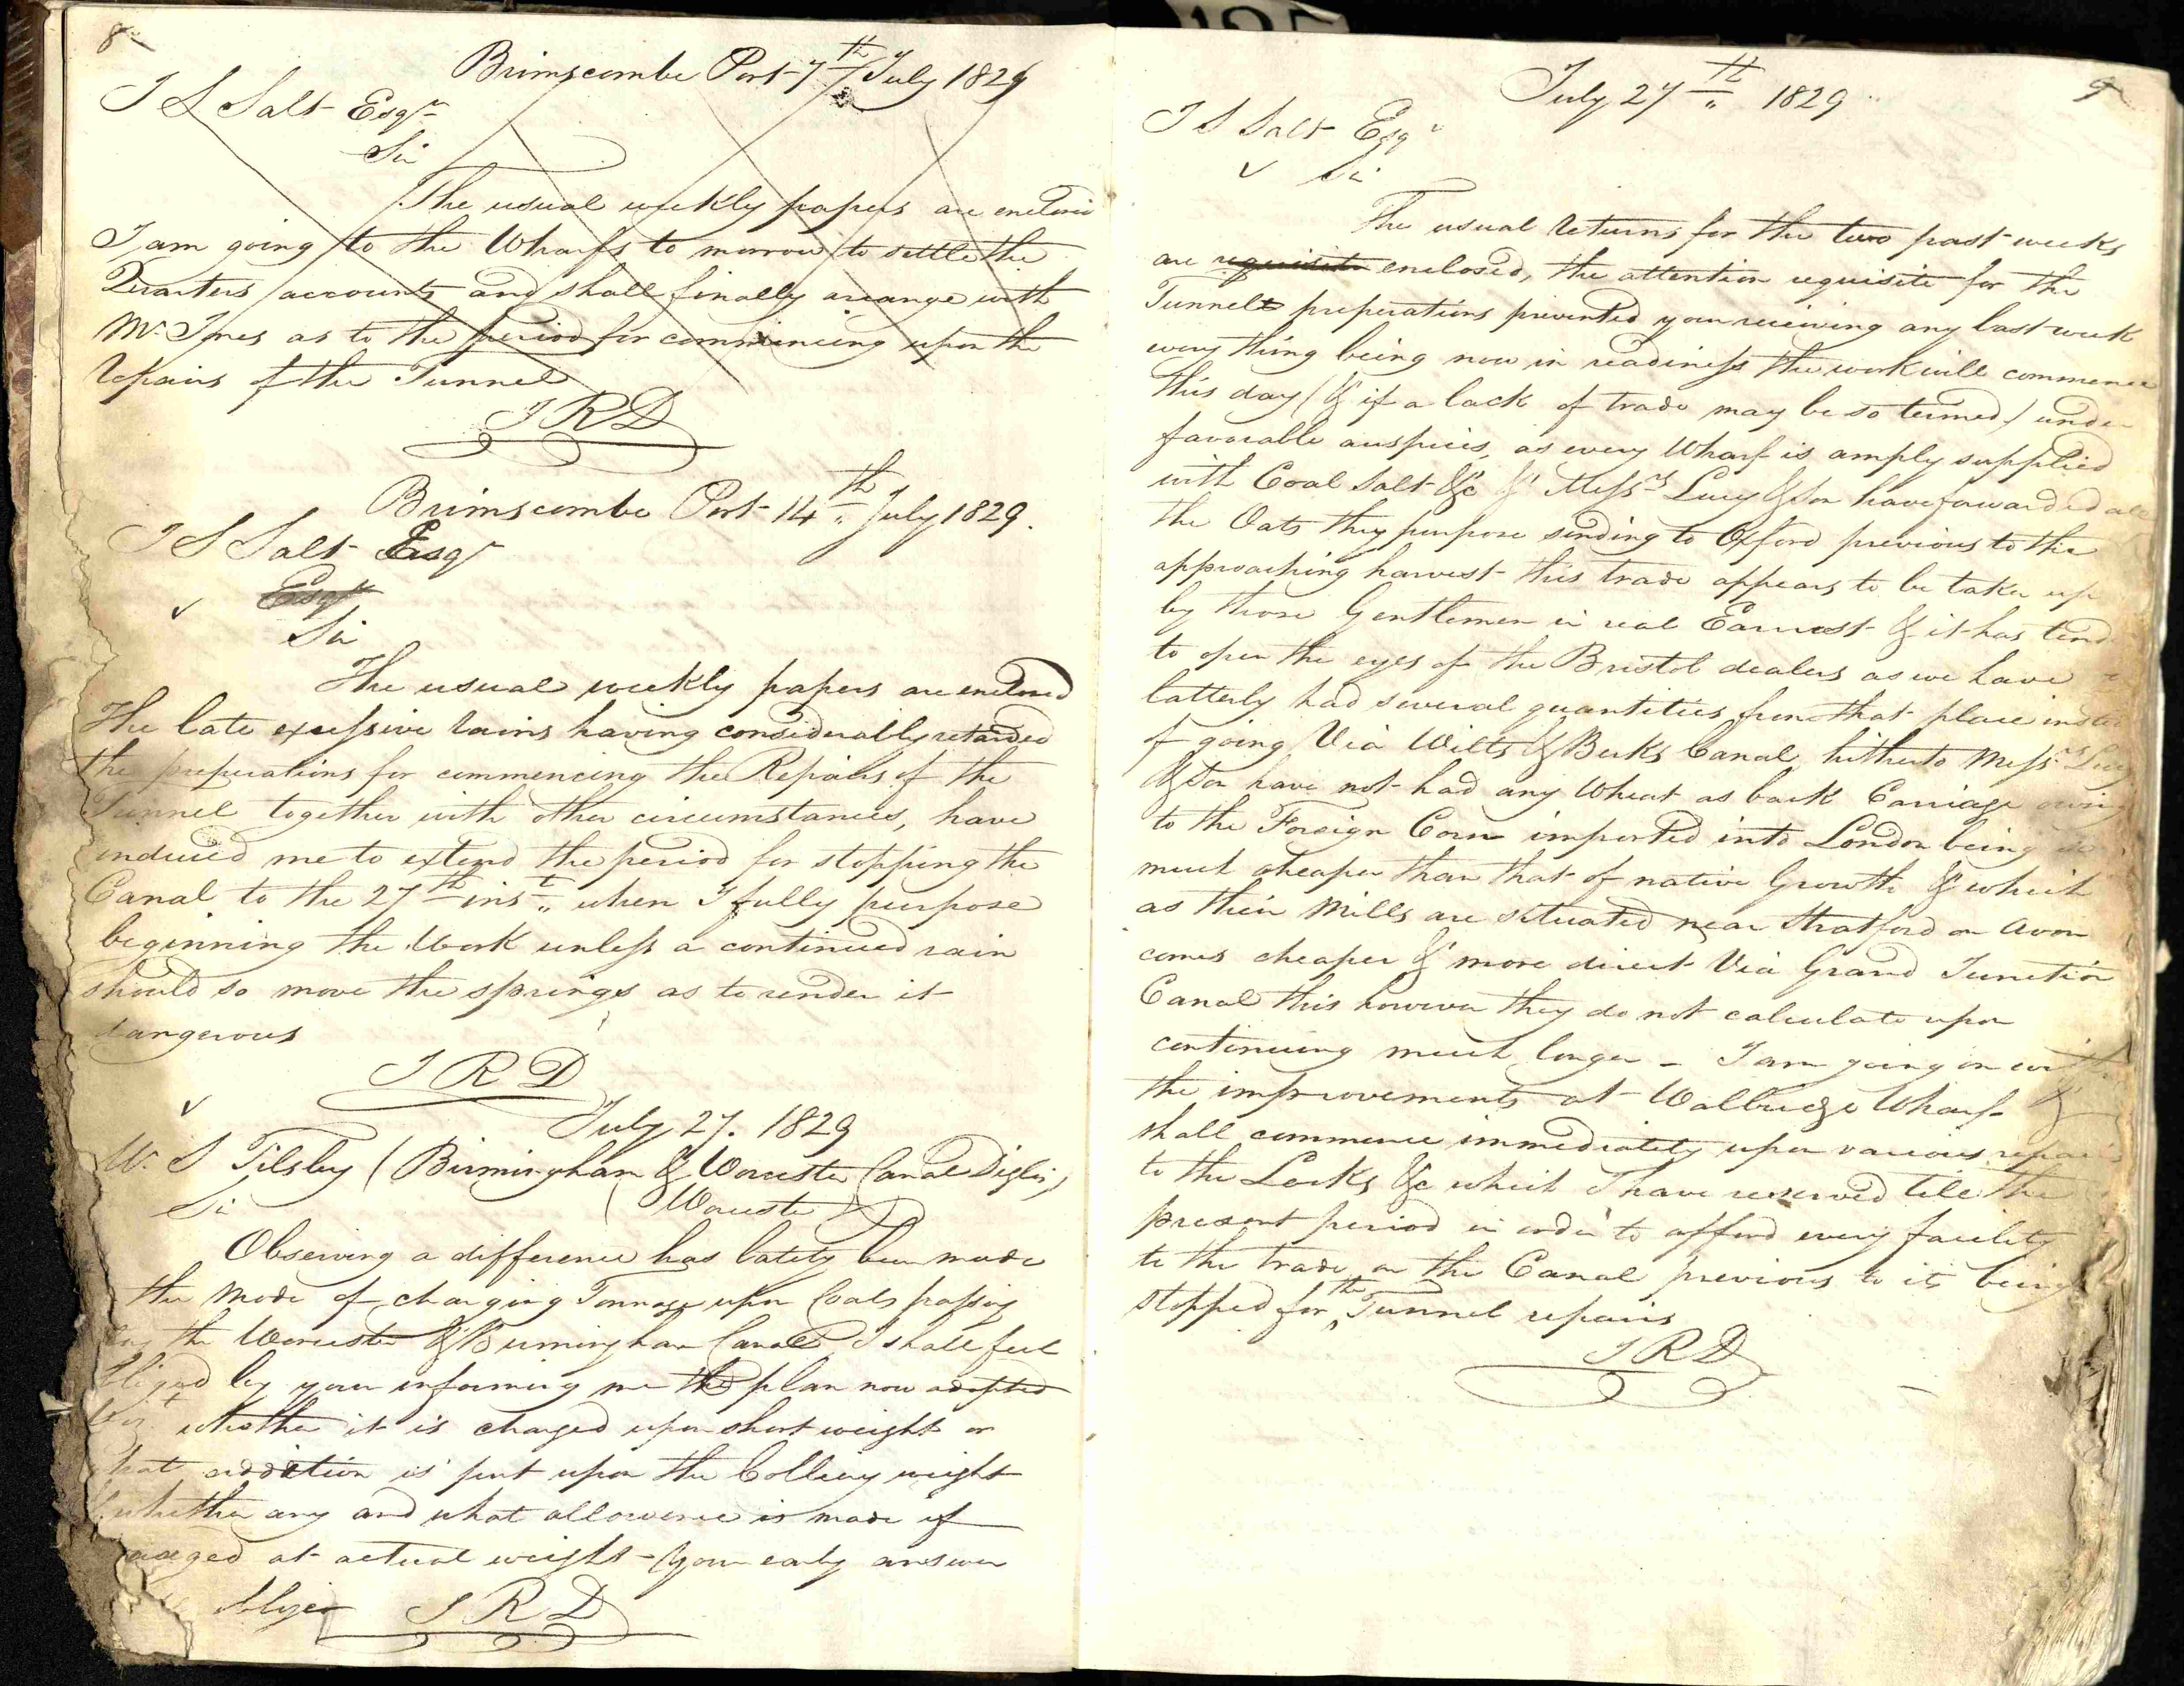 8
Brimscombe Port 7th July 1829
J S Salt Esqr
Sir
The usual weekly papers are enclosed
I am going to the Wharfs to morrow to settle the
Quarters accounts and shall finally arrange with
Mr. Jones as to the period for commencing upon the
repairs of the Tunnel
JRD
Brimscombe Port 14th July 1829.
J S Salt Esqr
Esqr
Sir
The usual weekly papers are enclosed
The late excessive rains having considerably retarded
the preperations for commencing the Repairs of the
Tunnel together with other circumstances, have
induced me to extend the period for stopping the
Canal to the 27th inst. when I fully purpose
beginning the Work unless a continued rain
should so move the springs as to render it
dangerous
JRD
July 27. 1829
Mr. S Tilsley (Birmingham & Worcester Canal Diglis,
Sir (Worcester)
Observing a difference has lately been made
the mode of charging Tonnage upon Coals passing
the Worcester & Birmingham Canal, I shall feel
obliged by your informing me the plan now adopted
Vizt whether it is charged upon short weight or
what addition is put upon the Colliery weight
& whether any and what allowance is made if
at actual weight - your early answer
oblige JRD
9
July 27th 1829
J S Salt Esqr
Sir
The usual returns for the two past weeks
are requisite enclosed, the attention requisite for the
Tunnel preperations prevented your receiving any last week
every thing being now in readiness the work will commence
this day (& if a lack of trade may be so termed) under
favorable auspices, as every Wharf is amply supplied
with Coal Salt &c & Messrs Lucy & Son have forwarded all
the Oats they purpose sending to Oxford previous to the
approaching harvest this trade appears to be taken up
by those Gentlemen in real Earnest & it has tend
to open the eyes of the Bristol dealers as we have
latterly had several quantities from that place instead
of going Via Wilts & Berks Canal, hitherto Messrs Lucy
& Son have not had any Wheat as back Carriage owing
to the Foreign Corn imported into London being so
much cheaper than that of native Growth & which
as their Mills are situated near Stratford on Avon
comes cheaper & more direct Via Grand Junction
Canal this however they do not calculate upon
continuing much longer - I am going on with
the improvements at Wallbridge Wharf &
shall commence immediately upon various repairs
to the Locks &c which I have reserved till the
present period in order to afford every facility
to the trade on the Canal previous to its being
stopped for the Tunnel repairs
JRD